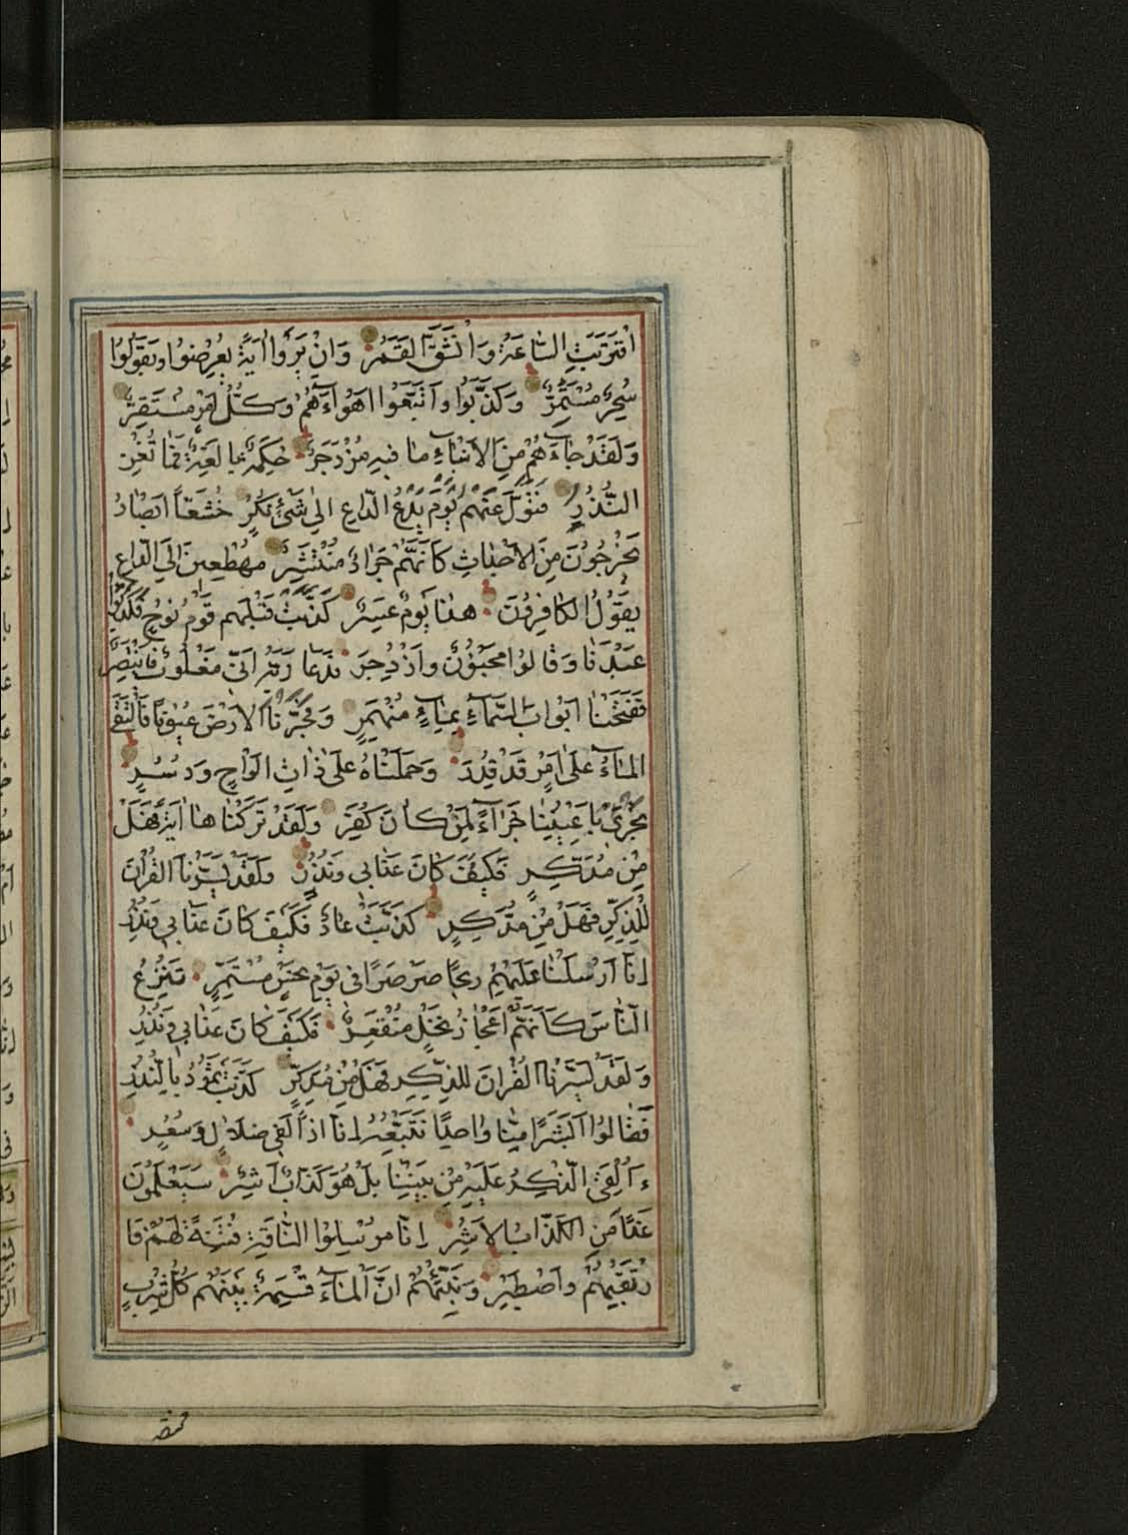 اقْتَرَبَتِ السَّاعَةُ وَانْشَقَّ الْقَمَرُ وَاِنْ يَرَوْا اٰيَةً يُعْرِضُوا وَيَقُولُوا
سِحْرٌ مُسْتَمِرٌّ وَكَذَّبُوا وَاتَّبَعُوا اَهْوَآءَهُمْ وَكُلُّ اَمْرٍ مُسْتَقِرٌّ
وَلَقَدْ جَآءَهُمْ مِنَ الْاَنْبَآءِ مَا فِيهِ مُزْدَجَرٌ حِكْمَةٌ بَالِغَةٌ فَمَا تُغْنِ
النُّذُرُ فَتَوَلَّ عَنْهُمْ يَوْمَ يَدْعُ الدَّاعِ اِلٰى شَىْءٍ نُكُرٍ خُشَّعًا اَبْصَارُ
يَخْرُجُونَ مِنَ الْاَجْدَاثِ كَاَنَّهُمْ جَرَادٌ مُنْتَشِرٌ مُهْطِعِينَ اِلَى الدَّاعِ
يَقُولُ الْكَافِرُونَ هٰذَا يَوْمٌ عَسِرٌ كَذَّبَتْ قَبْلَهُمْ قَوْمُ نُوحٍ فَكَذَّبُوا
عَبْدَنَا وَقَالُوا مَجْنُونٌ وَازْدُجِرَ فَدَعَا رَبَّهُ اَنِّى مَغْلُوبٌ فَانْتَصِرْ
فَفَتَحْنَا اَبْوَابَ السَّمَآءِ بِمَآءٍ مُنْهَمِرٍ وَفَجَّرْنَا الْاَرْضَ عُيُونًا فَالْتَقَى
الْمَآءُ عَلٰى اَمْرٍ قَدْ قُدِرَ وَحَمَلْنَاهُ عَلٰى ذَاتِ اَلْوَاحٍ وَدُسُرٍ
تَجْرِى بِاَعْيُنِنَا جَزَآءً لِمَنْ كَانَ كُفِرَ وَلَقَدْ تَرَكْنَاهَا اٰيَةً فَهَلْ
مِنْ مُدَّكِرٍ فَكَيْفَ كَانَ عَذَابِى وَنُذُرِ وَلَقَدْ يَسَّرْنَا الْقُرْاٰنَ
لِلذِّكْرِ فَهَلْ مِنْ مُدَّكِرٍ كَذَّبَتْ عَادٌ فَكَيْفَ كَانَ عَذَابِى وَنُذُرِ
اِنَّا اَرْسَلْنَا عَلَيْهِمْ رِيحًا صَرْصَرًا فِى يَوْمِ نَحْسٍ مُسْتَمِرٍّ تَنْزِعُ
النَّاسَ كَاَنَّهُمْ اَعْجَازُ نَخْلٍ مُنْقَعِرٍ فَكَيْفَ كَانَ عَذَابِى وَنُذُرِ
وَلَقَدْ يَسَّرْنَا الْقُرْاٰنَ لِلذِّكْرِ فَهَلْ مِنْ مُدَّكِرٍ كَذَّبَتْ ثَمُودُ بِالنُّذُرِ
فَقَالُوا اَبَشَرًا مِنَّا وَاحِدًا نَتَّبِعُهُ اِنَّا اِذًا لَفِى ضَلَالٍ وَسُعُرٍ
ءَاُلْقِىَ الذِّكْرُ عَلَيْهِ مِنْ بَيْنِنَا بَلْ هُوَ كَذَّابٌ اَشِرٌ سَيَعْلَمُونَ
غَدًا مَنِ الْكَذَّابُ الْاَشِرُ اِنَّا مُرْسِلُوا النَّاقَةِ فِتْنَةً لَهُمْ فَا
رْتَقِبْهُمْ وَاصْطَبِرْ وَنَبِّئْهُمْ اَنَّ الْمَآءَ قِسْمَةٌ بَيْنَهُمْ كُلُّ شِرْبٍ